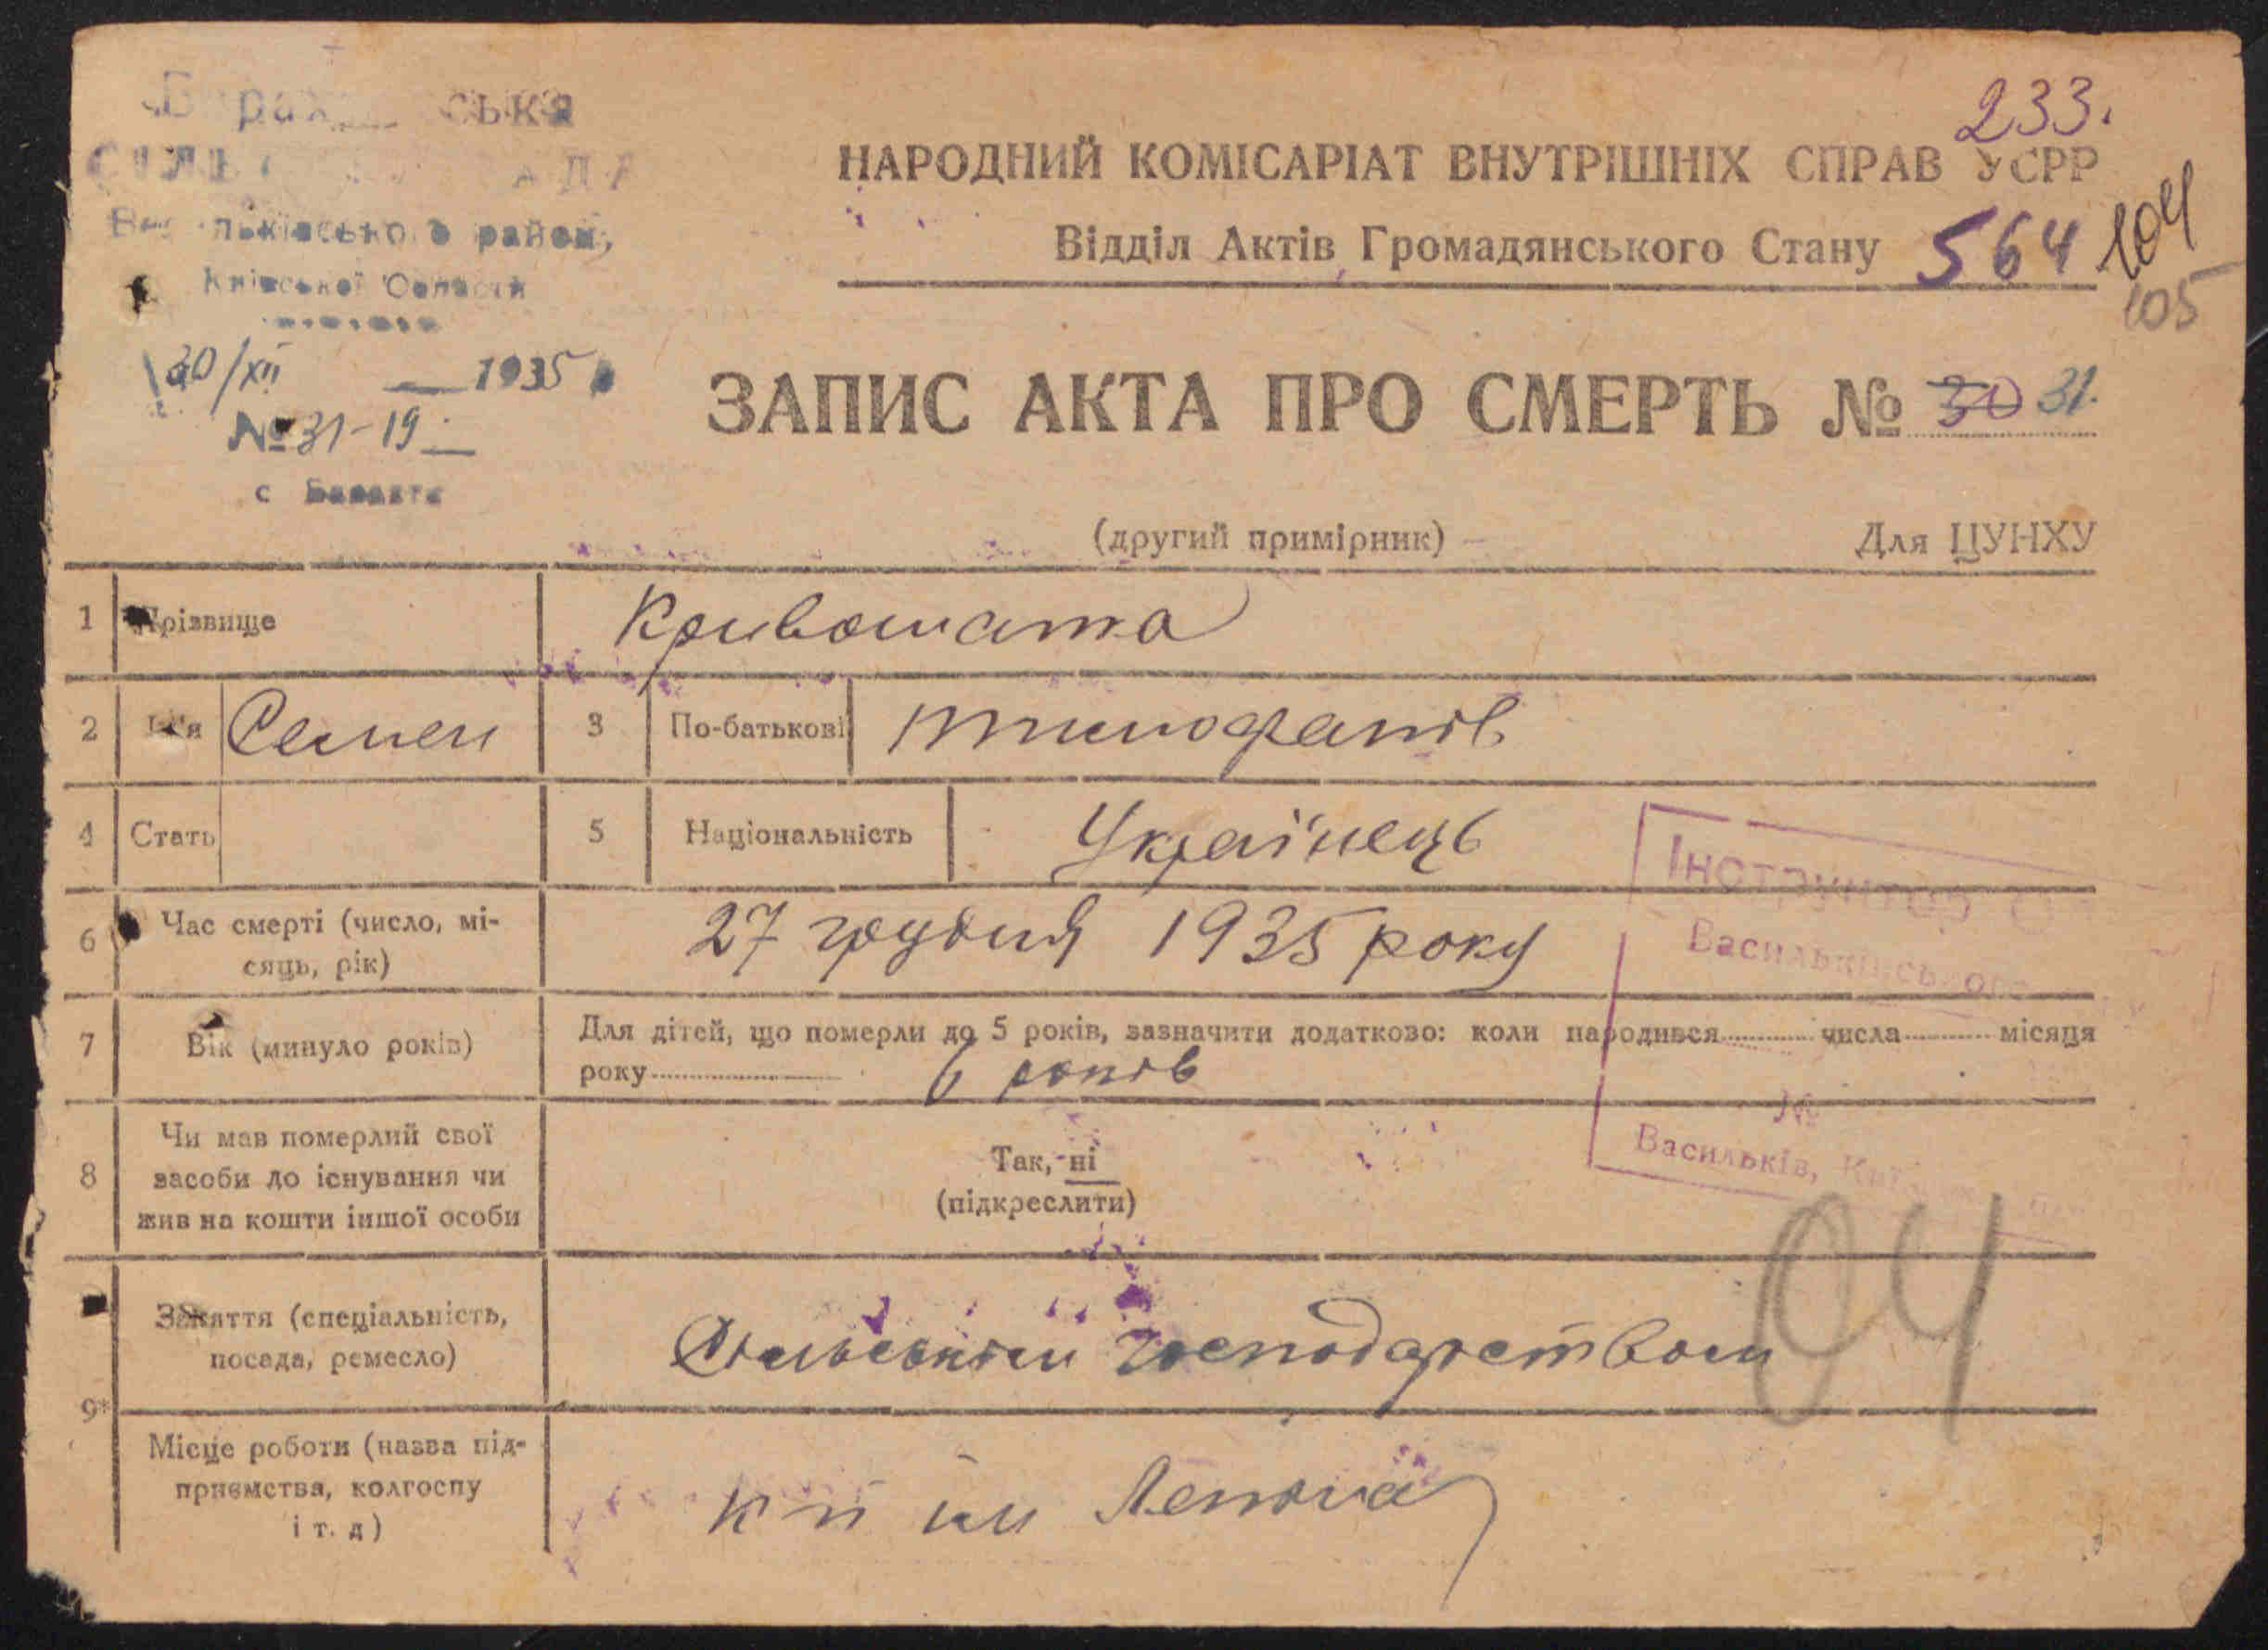 233.
НАРОДНИЙ КОМІСАРІАТ ВНУТРІШНІХ СПРАВ УСРР
Відділ Актів Громадянського Стану 564 104
105
району
Київської Области
30/XII 1935
№ 31-19
с
ЗАПИС АКТА ПРО СМЕРТЬ № 30 31.
(другий примірник)
Для ЦУНХУ
1 Прізвище Кривошата
2 Ім'я Семен 3 По-батькові
4 Стать 5 Національність Українець
Інструктор
Васильківського
6 Час смерті (число, мі-
сяць, рік) 27 грудня 1935 року
7 Вік (минуло років) Для дітей, що померли до 5 років, зазначити додатково: коли народився числа місяця
року 6 років
№
Васильків,
8 Чи мав померлий свої
засоби до існування чи
жив на кошти іншої особи
Так, ні
(підкреслити)
04
9* Заняття (спеціальність,
посада, ремесло) господарством
Місце роботи (назва під-
приємства, колгоспу
і т. д)
к п ім Леніна